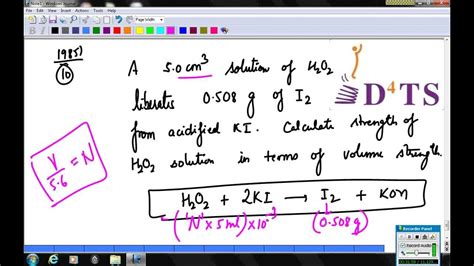 Note1 - Windows Journal
Page Width
1985)
(10)
A 5.0 cm³ solution of H₂O₂
liberates 0.508 g of I₂
D⁴TS
from acidified KI. Calculate strength of
H₂O₂ solution in terms of volume strength.
V/5.6 = N
H₂O₂ + 2KI → I₂ + KOH
(N × 5 ml) × 10⁻³ (0.508 g)
Recorder Panel
Record Audio